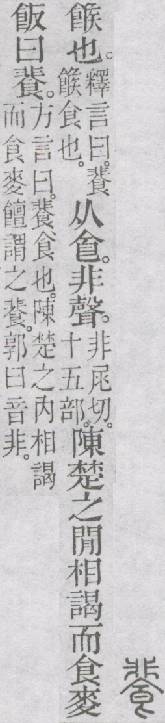 餥
餱也。釋言曰。餥餱食也。从食。非聲。非尾切。十五部。陳楚之閒相謁而食麥
飯曰餥。方言曰。餥食也。陳楚之內相謁而食麥饘謂之餥。郭曰音非。